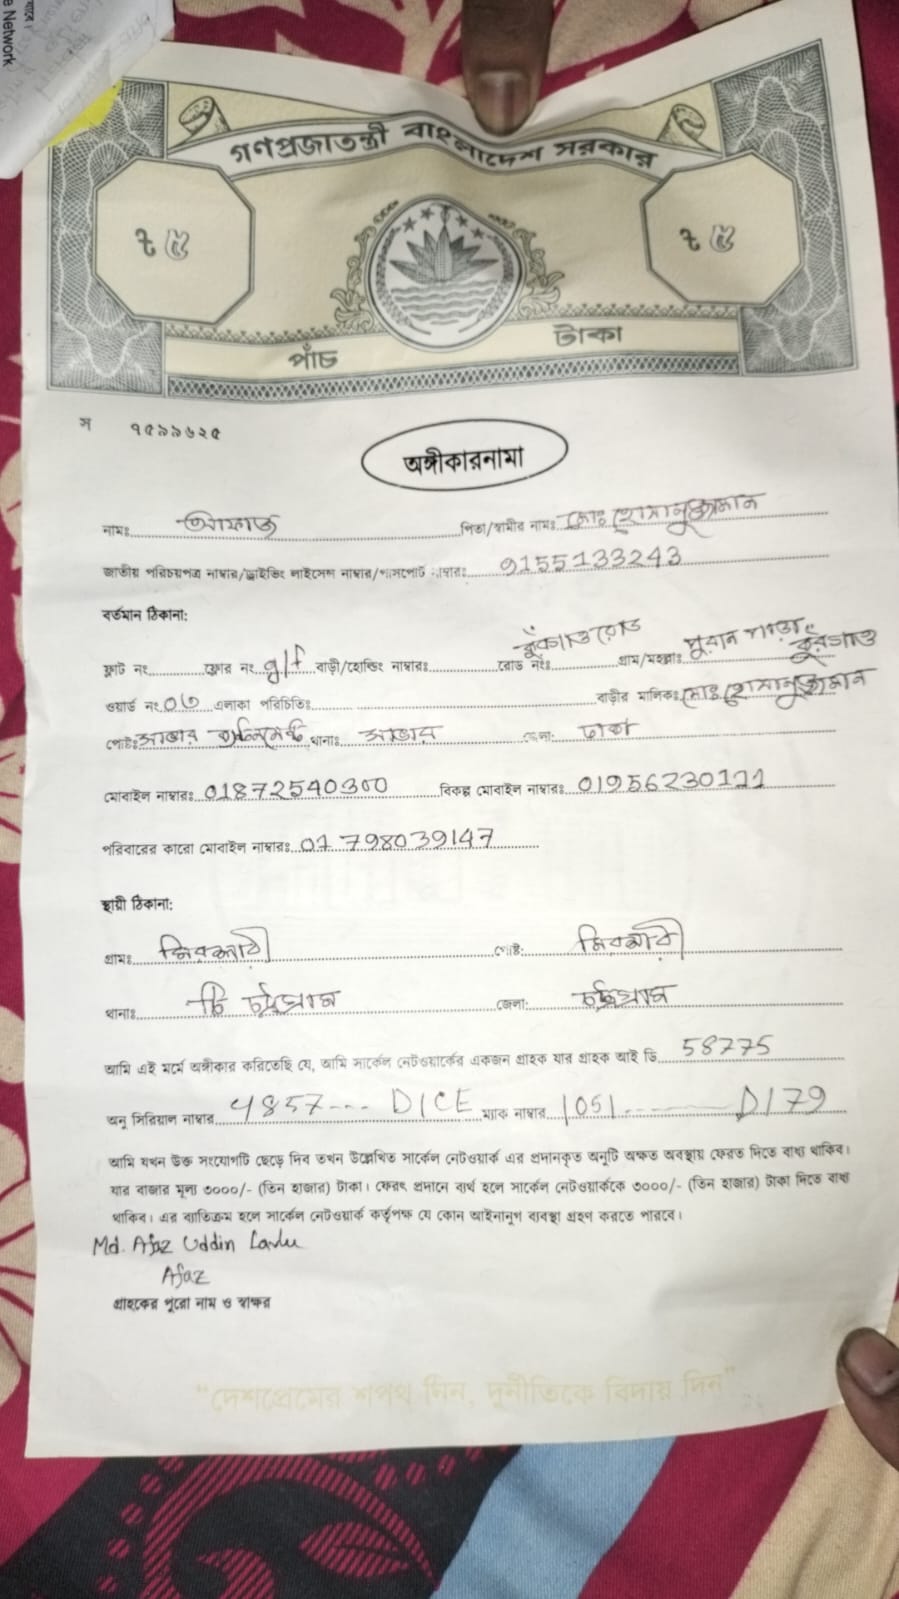 e Network
গণপ্রজাতন্ত্রী বাংলাদেশ সরকার
৳ ৫ ৳ ৫
পাঁচ টাকা
স ৭৫৯৯৬২৫
অঙ্গীকারনামা
নামঃ আফাজ পিতা/স্বামীর নামঃ মোঃ হোসানুজ্জামান
জাতীয় পরিচয়পত্র নাম্বার/ড্রাইভিং লাইসেন্স নাম্বার/পাসপোর্ট নাম্বারঃ 9155133243
বর্তমান ঠিকানা:
ফ্লাট নং ফ্লোর নং g/f বাড়ী/হোল্ডিং নাম্বারঃ রোড নং গ্রাম/মহল্লাঃ পুরান পাড়া
ওয়ার্ড নং ০৩ এলাকা পরিচিতিঃ বাড়ীর মালিকঃ মোঃ হোসানুজ্জামান
পোষ্টঃ সাভার থানাঃ সাভার জেলা: ঢাকা
মোবাইল নাম্বারঃ 01872540300 বিকল্প মোবাইল নাম্বারঃ 01956230111
পরিবারের কারো মোবাইল নাম্বারঃ 01798039147
স্থায়ী ঠিকানা:
গ্রামঃ পোষ্ট:
থানাঃ জেলা: চট্টগ্রাম
আমি এই মর্মে অঙ্গীকার করিতেছি যে, আমি সার্কেল নেটওয়ার্কের একজন গ্রাহক যার গ্রাহক আই ডি 58775
অনু সিরিয়াল নাম্বার 4857--- D1CE ম্যাক নাম্বার 1051 D179
আমি যখন উক্ত সংযোগটি ছেড়ে দিব তখন উল্লেখিত সার্কেল নেটওয়ার্ক এর প্রদানকৃত অনুটি অক্ষত অবস্থায় ফেরত দিতে বাধ্য থাকিব।
যার বাজার মূল্য ৩০০০/- (তিন হাজার) টাকা। ফেরৎ প্রদানে ব্যর্থ হলে সার্কেল নেটওয়ার্ককে ৩০০০/- (তিন হাজার) টাকা দিতে বাধ্য
থাকিব। এর ব্যতিক্রম হলে সার্কেল নেটওয়ার্ক কর্তৃপক্ষ যে কোন আইনানুগ ব্যবস্থা গ্রহণ করতে পারবে।
Md. Afaz Uddin
Afaz
গ্রাহকের পুরো নাম ও স্বাক্ষর
"দেশপ্রেমের শপথ নিন, দুর্নীতিকে বিদায় দিন"